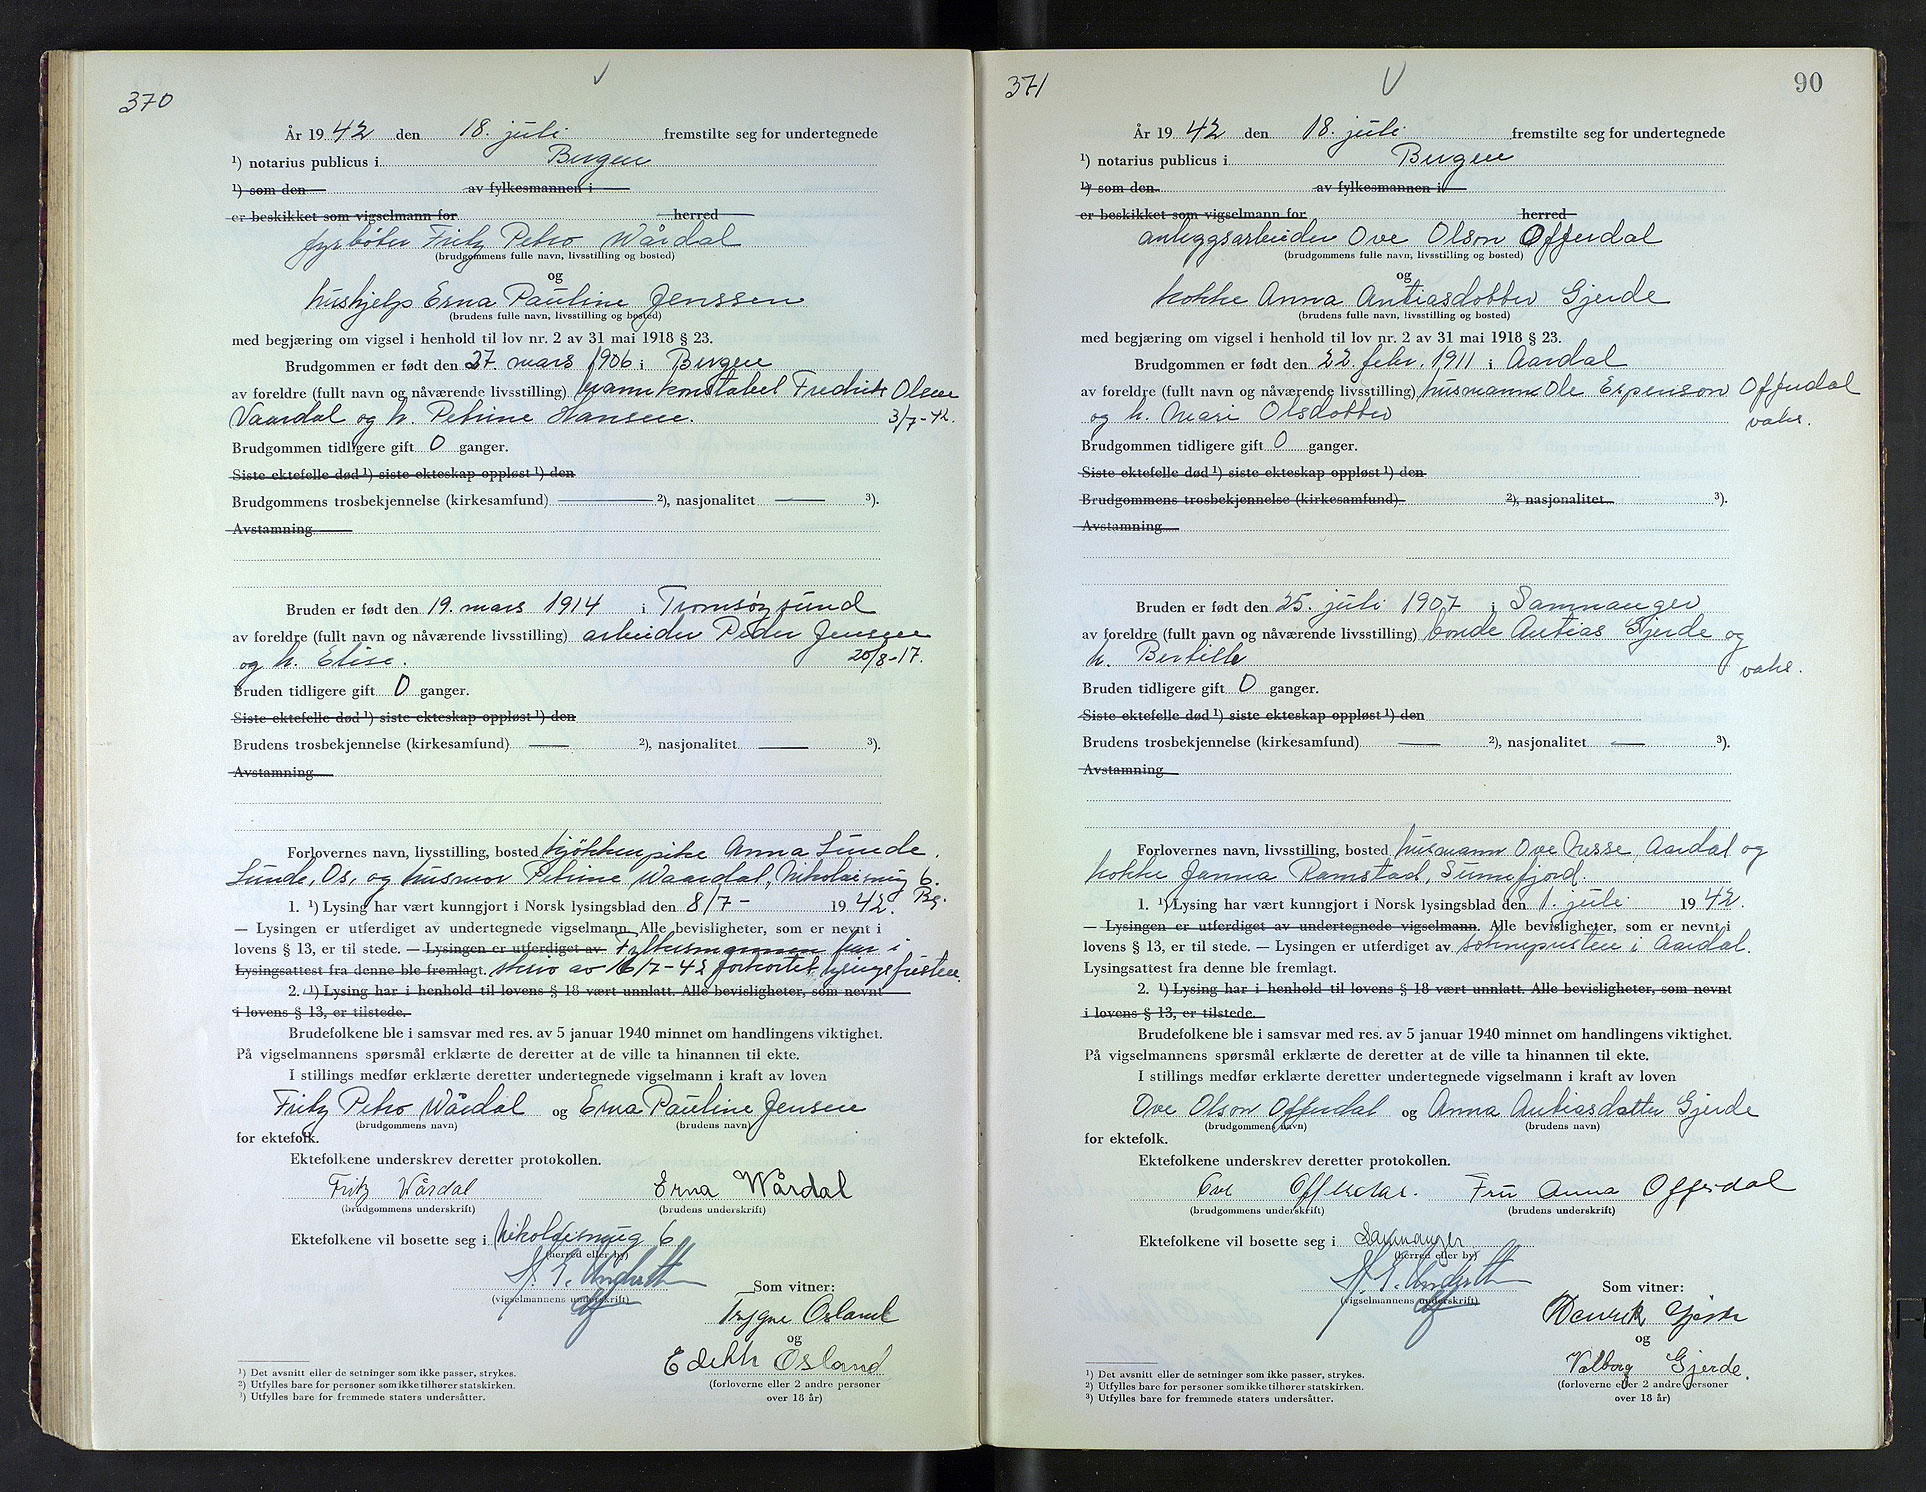 370
År 1942 den 18. juli fremstilte seg for undertegnede
¹) notarius publicus i Bergen
¹) som den av fylkesmannen i
er beskikket som vigselmann for herred
fyrbøter Fritz Petro Wårdal
(brudgommens fulle navn, livsstilling og bosted)
og
hushjelp Erna Pauline Jenssen
(brudens fulle navn, livsstilling og bosted)
med begjæring om vigsel i henhold til lov nr. 2 av 31 mai 1918 § 23.
Brudgommen er født den 27. mars 1906 i Bergen
av foreldre (fullt navn og nåværende livsstilling) brannkonstabel Fredrik Olsen
Vaardal og h. Petrine Hansen. 3/7-42.
Brudgommen tidligere gift 0 ganger.
Siste ektefelle død ¹) siste ekteskap oppløst ¹) den
Brudgommens trosbekjennelse (kirkesamfund) — ²), nasjonalitet — ³).
Avstamning
Bruden er født den 19. mars 1914 i Tromsøysund
av foreldre (fullt navn og nåværende livsstilling) arbeider Peder Jensen
og h. Elise. 20/8-17.
Bruden tidligere gift 0 ganger.
Siste ektefelle død ¹) siste ekteskap oppløst ¹) den
Brudens trosbekjennelse (kirkesamfund) — ²), nasjonalitet — ³).
Avstamning
Forlovernes navn, livsstilling, bosted kjøkkenpike Anna Lunde,
Lunde, Os, og husmor Petrine Waardal, Nikolaismug 6.
Bg.
1. ¹) Lysing har vært kunngjort i Norsk lysingsblad den 8/7- 1942.
— Lysingen er utferdiget av undertegnede vigselmann. Alle bevisligheter, som er nevnt i
lovens § 13, er til stede. — Lysingen er utferdiget av Fylkesmannen har i
Lysingsattest fra denne ble fremlagt. skriv av 16/7-42 forkortet lysingsfristen.
2. ¹) Lysing har i henhold til lovens § 18 vært unnlatt. Alle bevisligheter, som nevnt
i lovens § 13, er tilstede.
Brudefolkene ble i samsvar med res. av 5 januar 1940 minnet om handlingens viktighet.
På vigselmannens spørsmål erklærte de deretter at de ville ta hinannen til ekte.
I stillings medfør erklærte deretter undertegnede vigselmann i kraft av loven
Fritz Petro Wårdal og Erna Pauline Jensen
(brudgommens navn) (brudens navn)
for ektefolk.
Ektefolkene underskrev deretter protokollen.
Fritz Wårdal Erna Wårdal
(brudgommens underskrift) (brudens underskrift)
Ektefolkene vil bosette seg i Nikolaismug 6
(herred eller by)
(vigselmannens underskrift)
Som vitner:
Trygve Osland
og
Edith Osland
(forloverne eller 2 andre personer
over 18 år)
¹) Det avsnitt eller de setninger som ikke passer, strykes.
²) Utfylles bare for personer som ikke tilhører statskirken.
³) Utfylles bare for fremmede staters undersåtter.
371
90
År 1942 den 18. juli fremstilte seg for undertegnede
¹) notarius publicus i Bergen
¹) som den av fylkesmannen i
er beskikket som vigselmann for herred
anleggsarbeider Ove Olson Offerdal
(brudgommens fulle navn, livsstilling og bosted)
og
kokke Anna Antiasdotter Gjerde
(brudens fulle navn, livsstilling og bosted)
med begjæring om vigsel i henhold til lov nr. 2 av 31 mai 1918 § 23.
Brudgommen er født den 22. febr. 1911 i Aardal
av foreldre (fullt navn og nåværende livsstilling) husmann Ole Espenson Offerdal
og h. Mari Olsdotter vaks.
Brudgommen tidligere gift 0 ganger.
Siste ektefelle død ¹) siste ekteskap oppløst ¹) den
Brudgommens trosbekjennelse (kirkesamfund) ²), nasjonalitet ³).
Avstamning
Bruden er født den 25. juli 1907 i Samnanger
av foreldre (fullt navn og nåværende livsstilling) bonde Antias Gjerde og
h. Bertille vaks.
Bruden tidligere gift 0 ganger.
Siste ektefelle død ¹) siste ekteskap oppløst ¹) den
Brudens trosbekjennelse (kirkesamfund) — ²), nasjonalitet — ³).
Avstamning
Forlovernes navn, livsstilling, bosted husmann Ove Nesse, Aardal og
kokke Janna Ramstad, Sunnfjord.
1. ¹) Lysing har vært kunngjort i Norsk lysingsblad den 1. juli 1942.
— Lysingen er utferdiget av undertegnede vigselmann. Alle bevisligheter, som er nevnt i
lovens § 13, er til stede. — Lysingen er utferdiget av soknepresten i Aardal.
Lysingsattest fra denne ble fremlagt.
2. ¹) Lysing har i henhold til lovens § 18 vært unnlatt. Alle bevisligheter, som nevnt
i lovens § 13, er tilstede.
Brudefolkene ble i samsvar med res. av 5 januar 1940 minnet om handlingens viktighet.
På vigselmannens spørsmål erklærte de deretter at de ville ta hinannen til ekte.
I stillings medfør erklærte deretter undertegnede vigselmann i kraft av loven
Ove Olson Offerdal og Anna Antiasdatter Gjerde
(brudgommens navn) (brudens navn)
for ektefolk.
Ektefolkene underskrev deretter protokollen.
Ove Offerdal. Fru Anna Offerdal
(brudgommens underskrift) (brudens underskrift)
Ektefolkene vil bosette seg i Samnanger
(herred eller by)
(vigselmannens underskrift)
Som vitner:
Henrik Gjerde
og
Valborg Gjerde.
(forloverne eller 2 andre personer
over 18 år)
¹) Det avsnitt eller de setninger som ikke passer, strykes.
²) Utfylles bare for personer som ikke tilhører statskirken.
³) Utfylles bare for fremmede staters undersåtter.